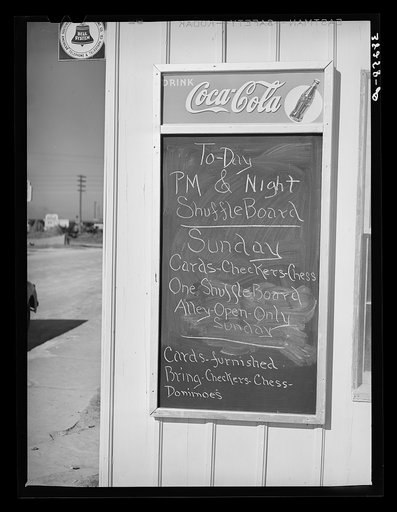 EASTMAN SAFETY KODAK
BELL SYSTEM
DRINK
Coca-Cola
To-Day
PM & Night
ShuffleBoard
Sunday
Cards-Checkers-Chess
One ShuffleBoard
Alley-Open-Only
Sunday
Cards-furnished
Bring-Checkers-Chess-
Dominoes